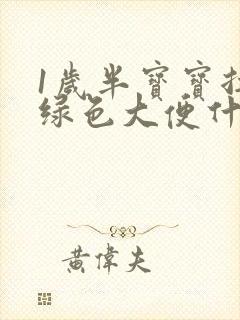 1歲半寶寶拉
綠色大便什
黃偉夫